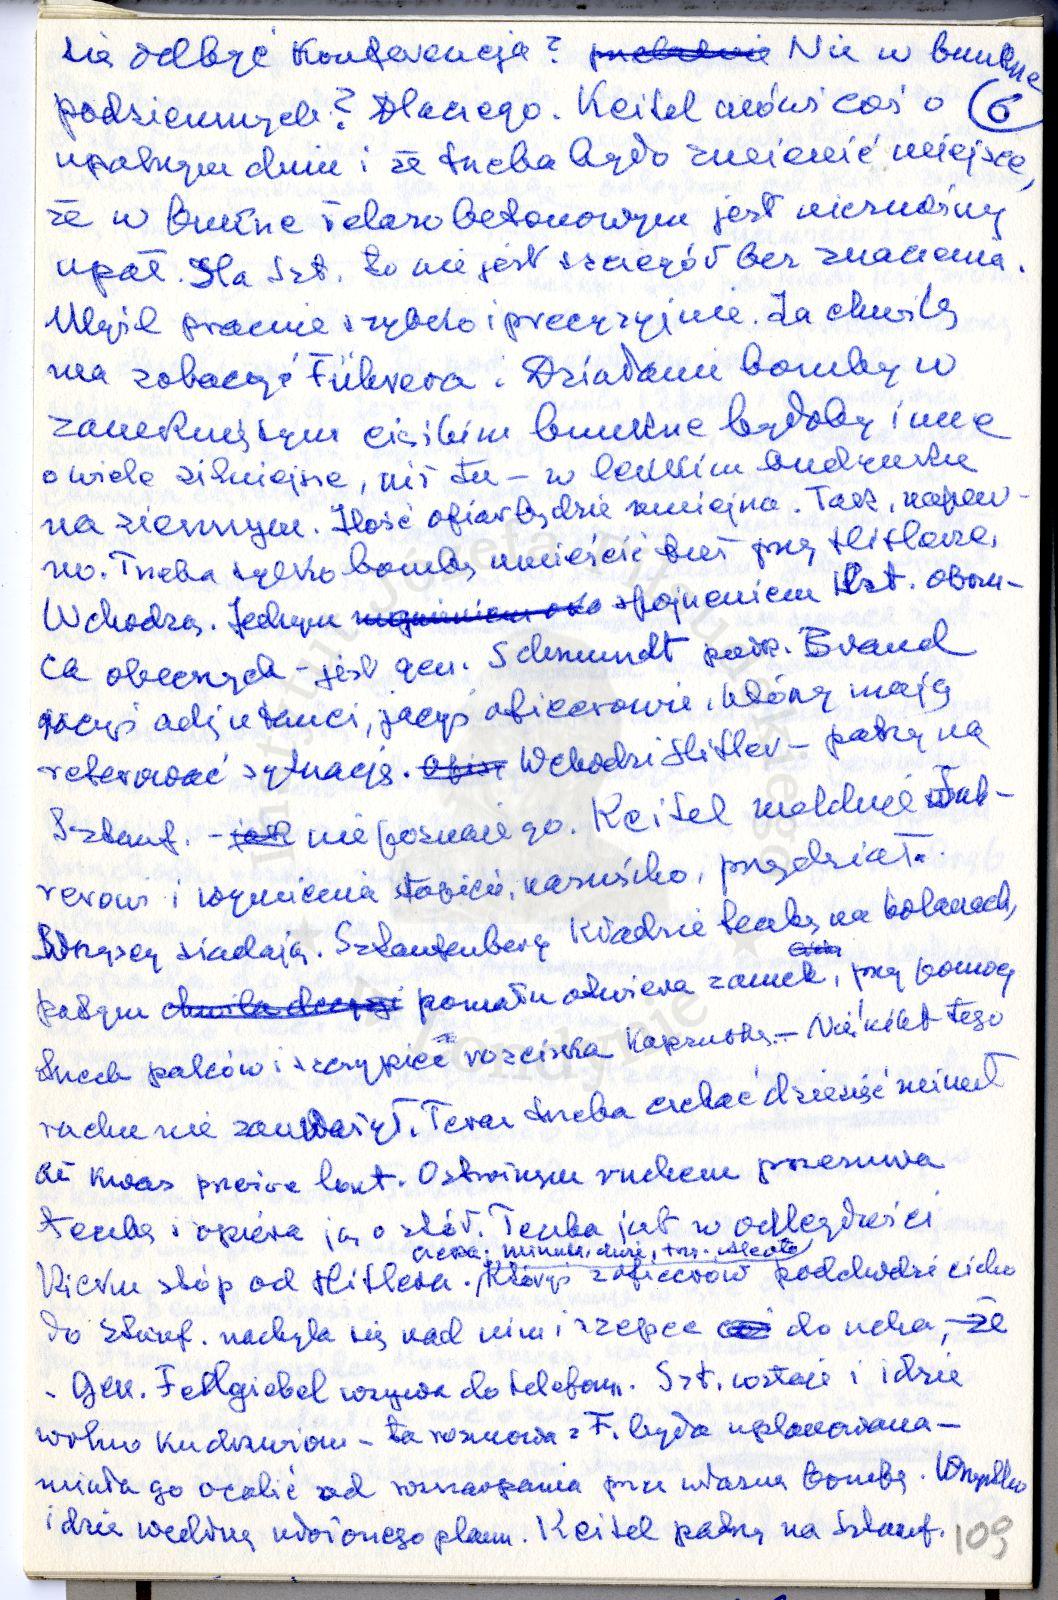 się odbyć Konferencja? Nie w bunkrze
podziemnych? Dlaczego. Keitel mówi coś o (6
upalnym dniu i że trzeba było zmienić miejsce,
że w bunkrze żelazobetonowym jest nieznośny
upał. Dla Szt. to nie jest szczegół bez znaczenia.
Myśl pracuje szybko i precyzyjnie. Za chwilę
ma zobaczyć Führera. Działanie bomby w
zamkniętym ciężkim bunkrze byłoby inne
o wiele silniejsze, niż tu – w lekkim budynku
naziemnym. Ilość ofiar będzie mniejsza. Tak, napew-
no. Trzeba tylko bombę umieścić tuż przy Hitlerze.
Wchodzą. Jednym mgnieniem oka spojrzeniem Szt. obrzu-
ca obecnych – jest gen. Schmundt pułk. Brand
jacyś adjutanci, jacyś oficerowie, którzy mają
referować sytuację. Wchodzi Hitler – patrzy na
Sztauf. – nie poznaje go. Keitel melduje Füh-
rerowi i wymienia stopień, nazwisko, przydział.
Wszyscy siadają. Sztaufenberg kładzie teczkę na kolanach,
potym chwila decyzji pomału otwiera zamek, przy pomocy
trzech palców i szczypiec rozciska kapsułkę – Nikt tego
ruchu nie zauważył. Teraz trzeba czekać dziesięć minut
aż kwas przeżre lont. Ostrożnym ruchem przesuwa
teczkę i opiera ją o stół. Teczka jest w odległości
czeka. minuta, dwie, trzy.
kilku stóp od Hitlera. Któryś z oficerów podchodzi cicho
do Sztauf. nachyla się nad nim i szepce coś do ucha, że
– Gen. Fellgiebel wzywa do telefonu. Szt. wstaje i idzie
wolno ku drzwiom – ta rozmowa z F. była uplanowana –
miała go ocalić od rozszarpania przez własną bombę. Wszystko
idzie według ułożonego planu. Keitel patrzy na Sztauf.
109
Instytut Józefa Piłsudskiego
w Londynie